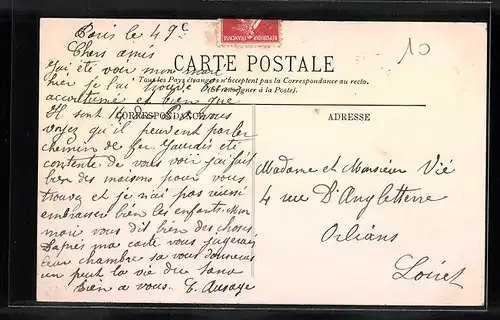 Paris le 4 9c
Chers amis
j'ai été voir mon mari
hier je l'ai trouvé bien
accoutumé et bien que
vous
voyez qu'il peuvent parler
chemin de fer j'aurais été
contente de vous voir j'ai fait
bien des maisons pour vous
trouver et je n'ai pas réussi
embrassez bien les enfants. Mon
mari vous dit bien des choses
D'après ma carte vous jugerez
sa vous donnera
un peut la vie du Sana
Bien a vous. E.
REPUBLIQUE FRANÇAISE
CARTE POSTALE
Tous les Pays étrangers n'acceptent pas la Correspondance au recto.
(Se renseigner à la Poste).
CORRESPONDANCE
ADRESSE
10
Madame et Monsieur Vié
4 rue D'Angletterre
Orléans
Loiret